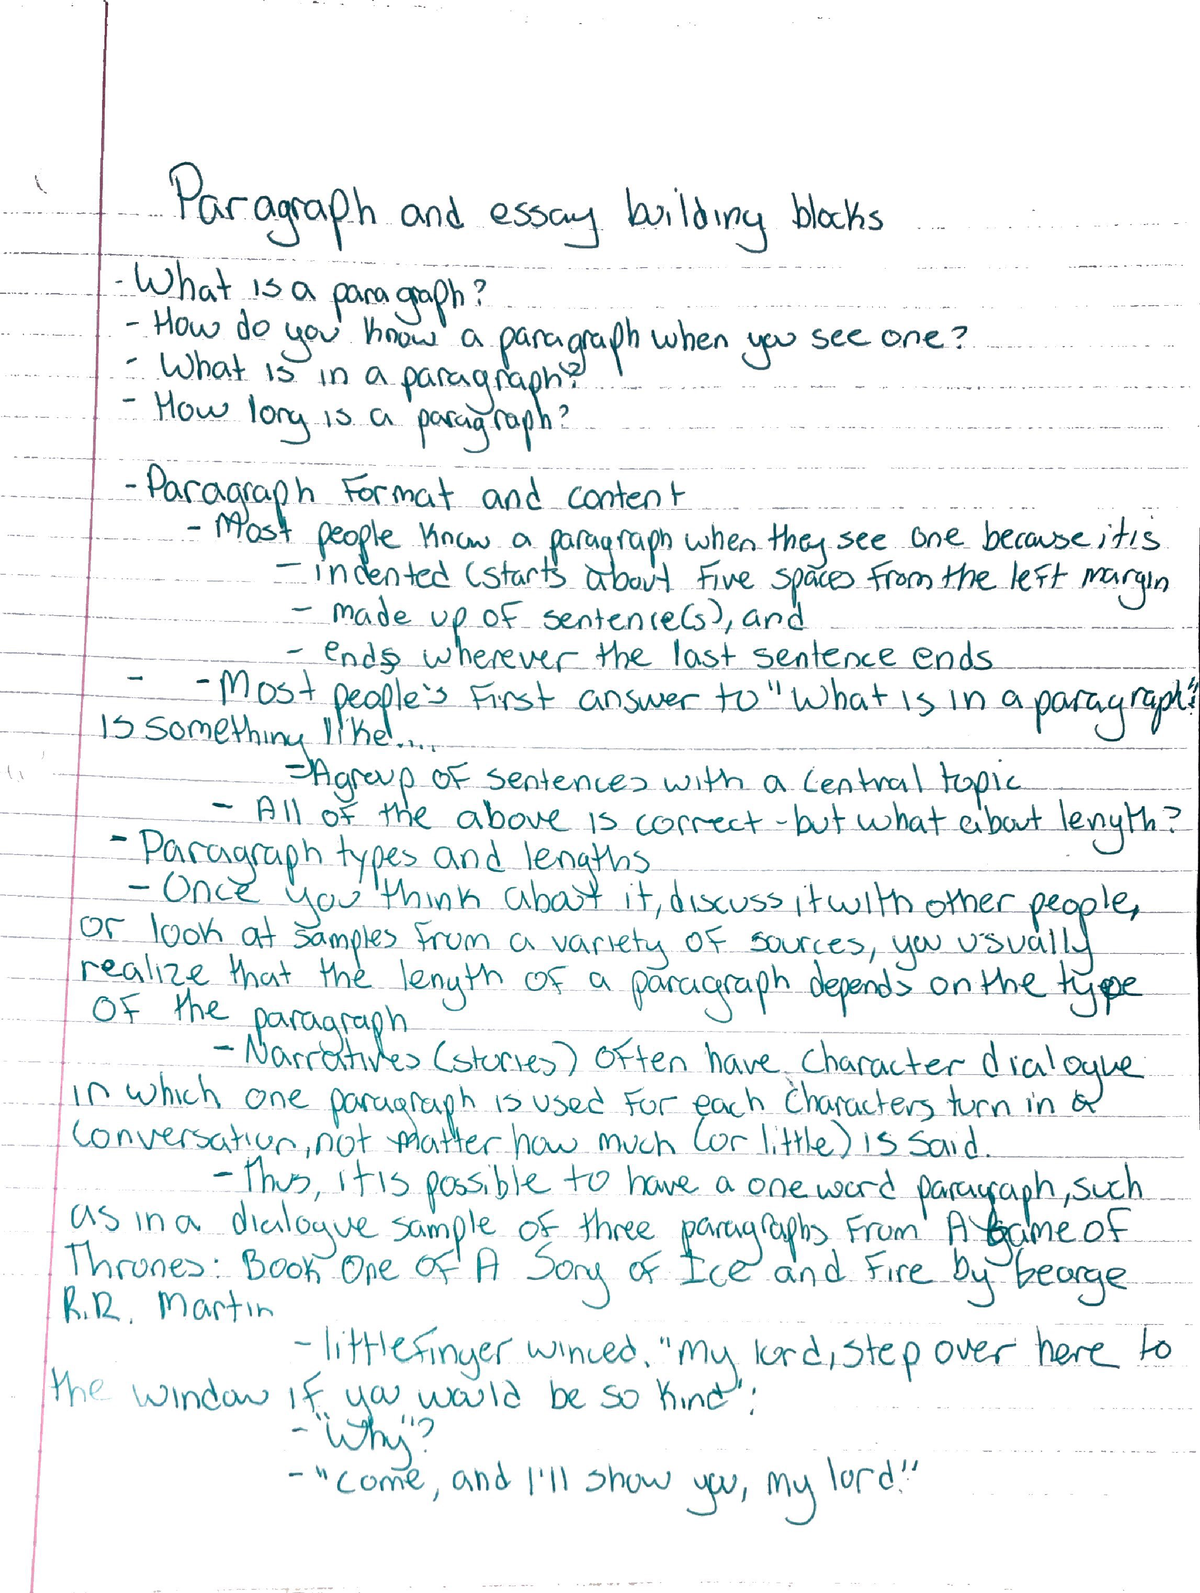 Paragraph and essay building blocks
- What is a paragraph?
- How do you know a paragraph when you see one?
- What is in a paragraph?
- How long is a paragraph?
- Paragraph format and content
- Most people know a paragraph when they see one because it is
- indented (starts about five spaces from the left margin
- made up of sentence(s), and
- ends wherever the last sentence ends
- - Most people's first answer to "What is in a paragraph"?
is something like....
- A group of sentences with a central topic
- All of the above is correct - but what about length?
- Paragraph types and lengths
- Once you think about it, discuss it with other people,
or look at samples from a variety of sources, you usually
realize that the length of a paragraph depends on the type
of the paragraph
- Narratives (stories) often have character dialogue
in which one paragraph is used for each characters turn in a
conversation, not matter how much (or little) is said.
- Thus, it is possible to have a one word paragraph, such
as in a dialogue sample of three paragraphs from A Game of
Thrones: Book One of A Song of Ice and Fire by George
R.R. Martin
- littlefinger winced. "my lord, step over here to
the window if you would be so kind".
- "Why"?
- "come, and I'll show you, my lord."